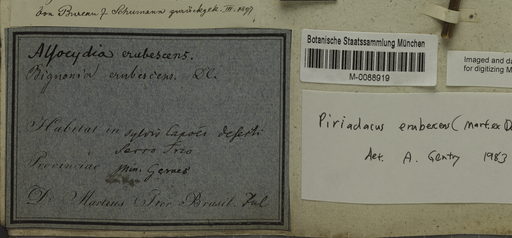 Von Bureau & Schumann zurückgek. III. 1897
Alsocydia erubescens.
Bignonia erubescens. DC.
Habitat in sylvis Capões deserti
Serro Frio
Provinciae Min. Geraes
D. Martius Iter Brasil. Jul
Botanische Staatssammlung München
M-0088919
Imaged and da
for digitizing M
Piriadacus erubescens (Mart. ex D
det. A. Gentry 1983